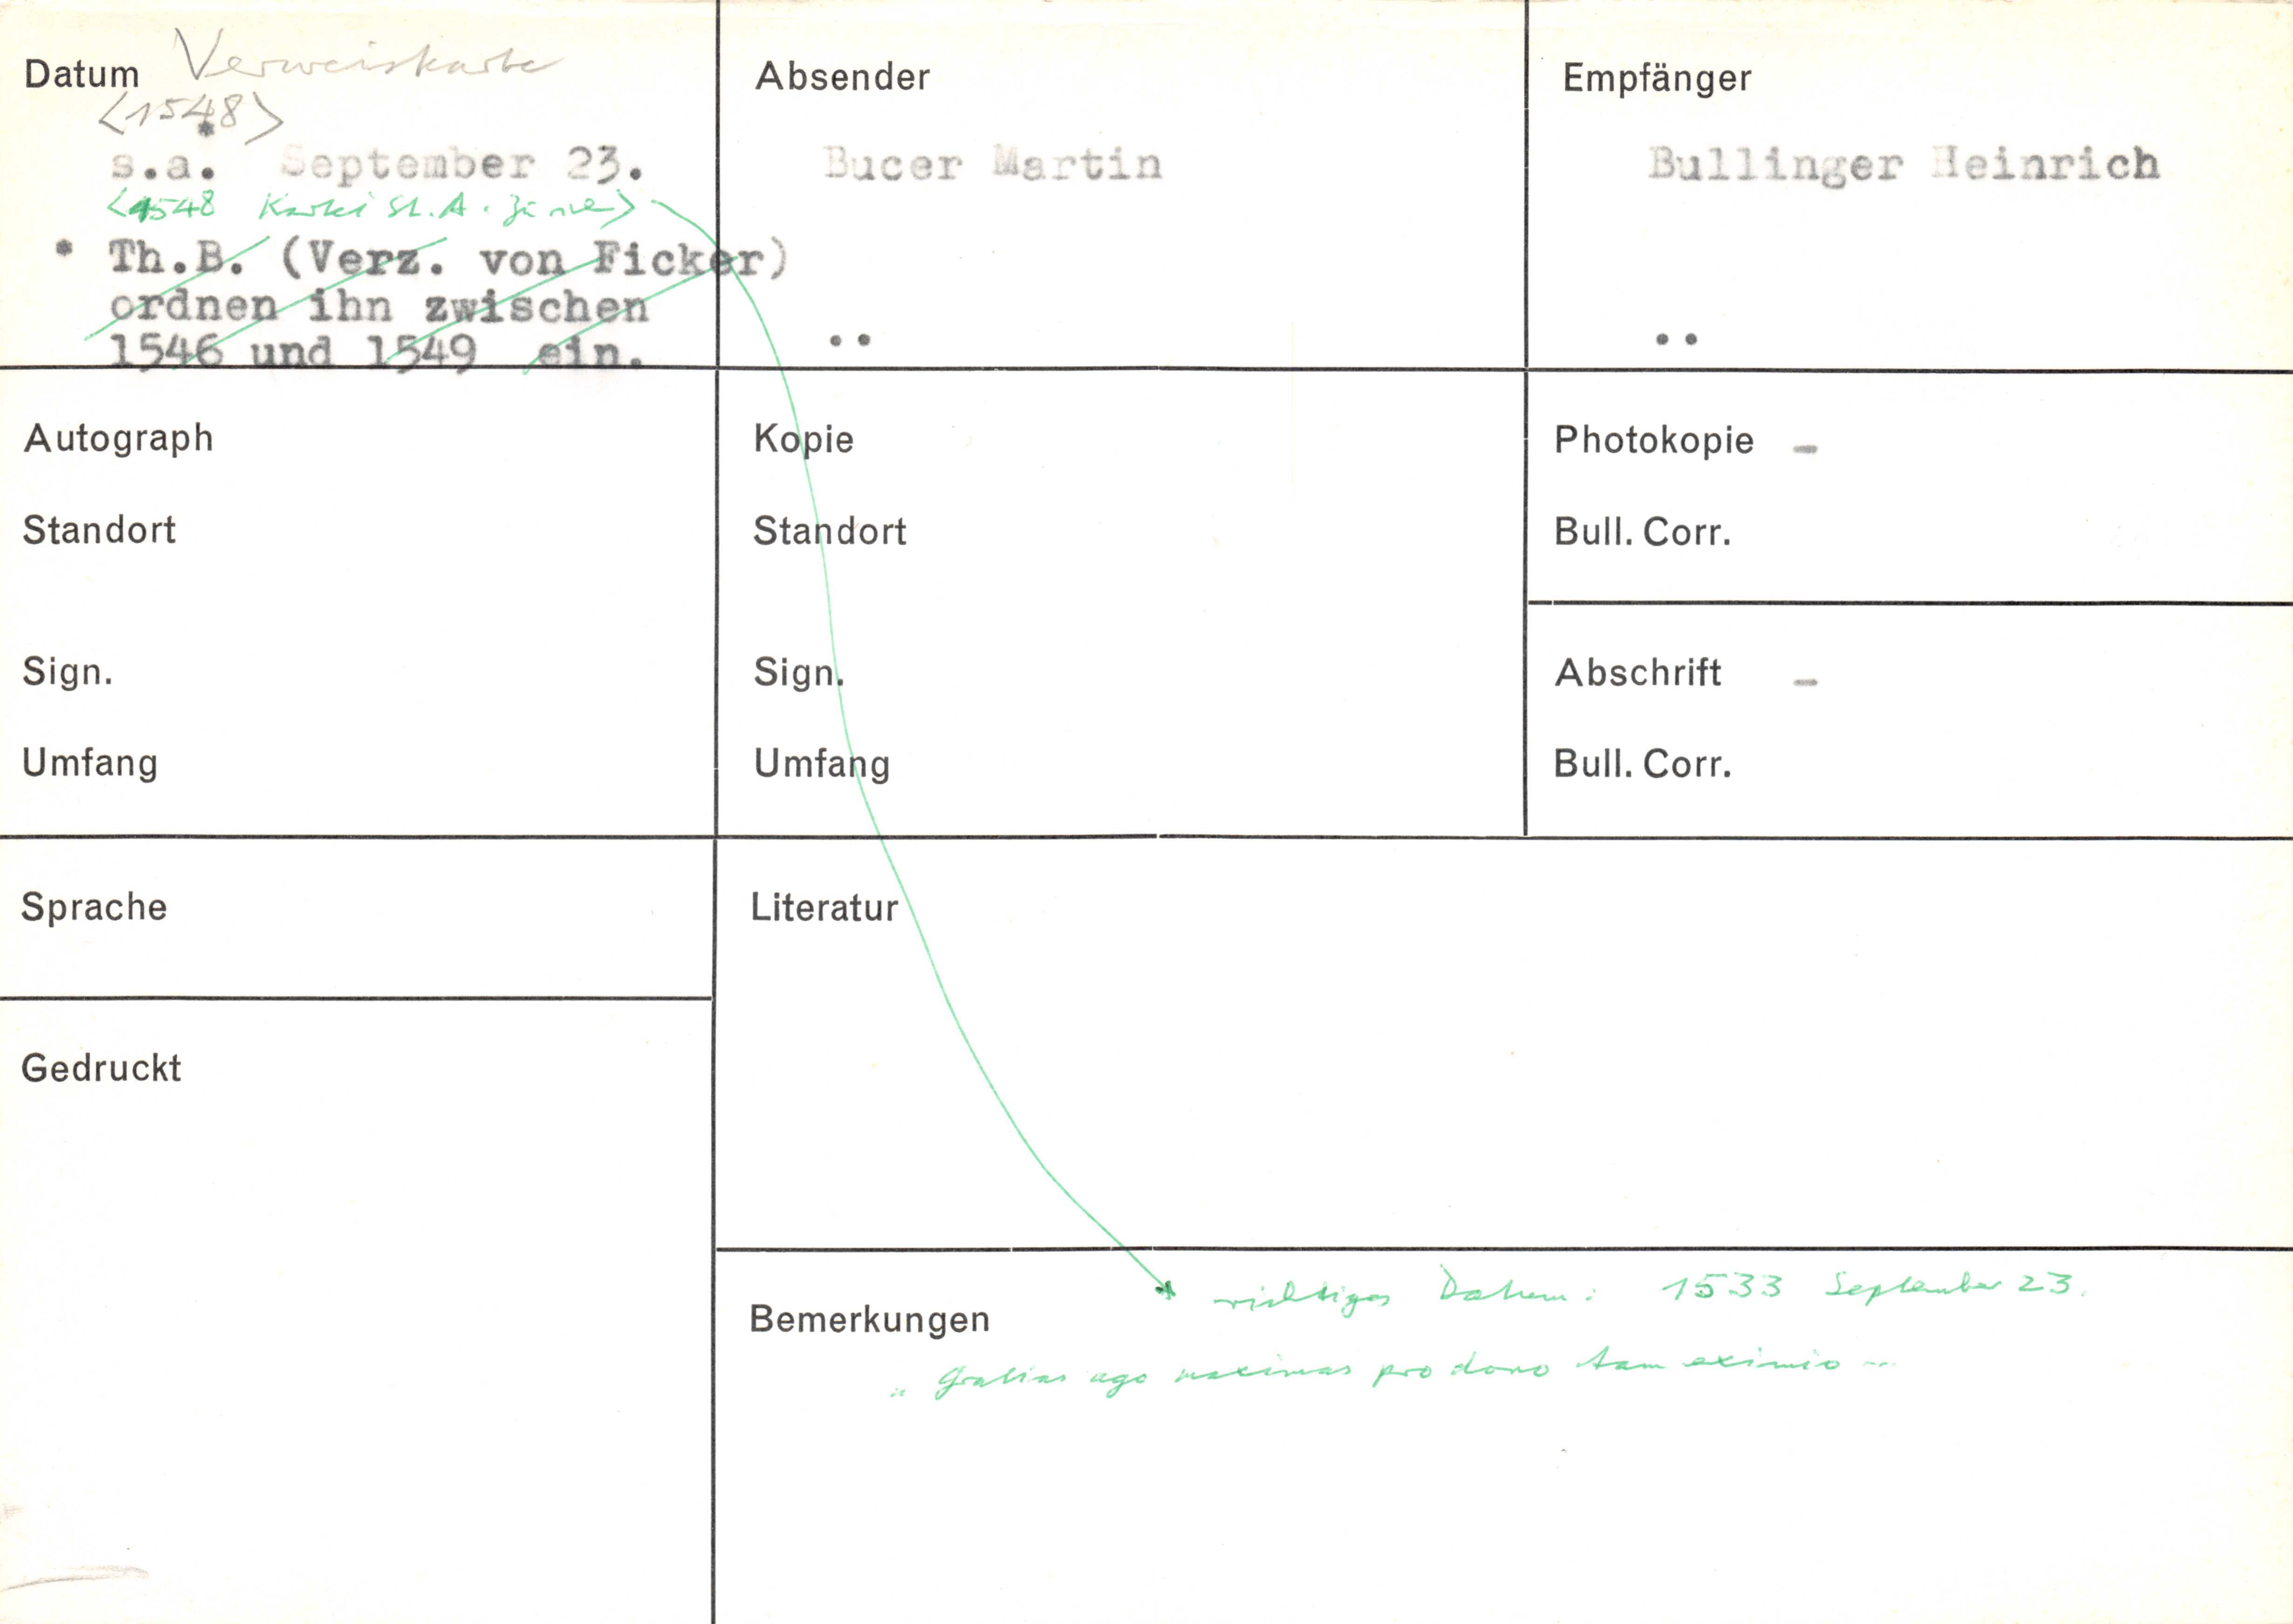 Datum Verweiskarte
<1548>
*
s.a. September 23.
<1548 Kartei St.A. Zürich>
* Th.B. (Verz. von Ficker)
ordnen ihn zwischen
1546 und 1549 ein.
Absender
Bucer Martin
..
Empfänger
Bullinger Heinrich
..
Autograph
Standort
Sign.
Umfang
Kopie
Standort
Sign.
Umfang
Photokopie -
Bull. Corr.
Abschrift -
Bull. Corr.
Sprache
Gedruckt
Literatur
Bemerkungen
* richtiges Datum: 1533 September 23.
" Gratias ago maximas pro dono tam eximio ...